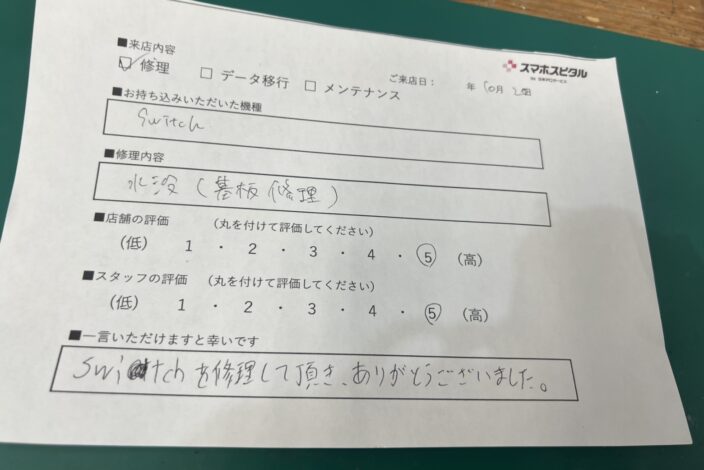 ■来店内容
スマホスピタル
修理 □ データ移行 □ メンテナンス
ご来店日： 年 10月 日
■お持ち込みいただいた機種
Switch
■修理内容
水没（基板修理）
■店舗の評価 （丸を付けて評価してください）
（低） 1 ・ 2 ・ 3 ・ 4 ・ 5 （高）
■スタッフの評価 （丸を付けて評価してください）
（低） 1 ・ 2 ・ 3 ・ 4 ・ 5 （高）
■一言いただけますと幸いです
Switchを修理して頂き、ありがとうございました。